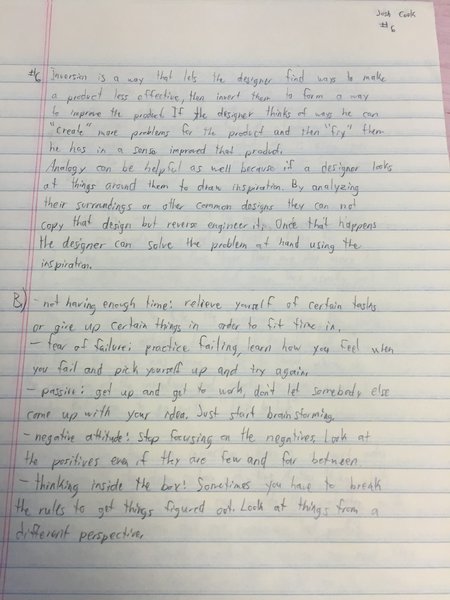 Josh Cook
#6
#6 Inversion is a way that lets the designer find ways to make
a product less effective, then invert them to form a way
to improve the product. If the designer thinks of ways he can
"create" more problems for the product and then "fry" them
he has in a sense improved that product.
Analogy can be helpful as well because if a designer looks
at things around them to draw inspiration. By analyzing
their surroundings or other common designs they can not
copy that design but reverse engineer it. Once that happens
the designer can solve the problem at hand using the
inspiration.
B) - not having enough time: relieve yourself of certain tasks
or give up certain things in order to fit time in.
- fear of failure: practice failing, learn how you feel when
you fail and pick yourself up and try again.
- passive: get up and get to work, don't let somebody else
come up with your idea. Just start brainstorming.
- negative attitude: Stop focusing on the negitives. Look at
the positives even if they are few and far between
- thinking inside the box: Sometimes you have to break
the rules to get things figured out. Look at things from a
different perspective.